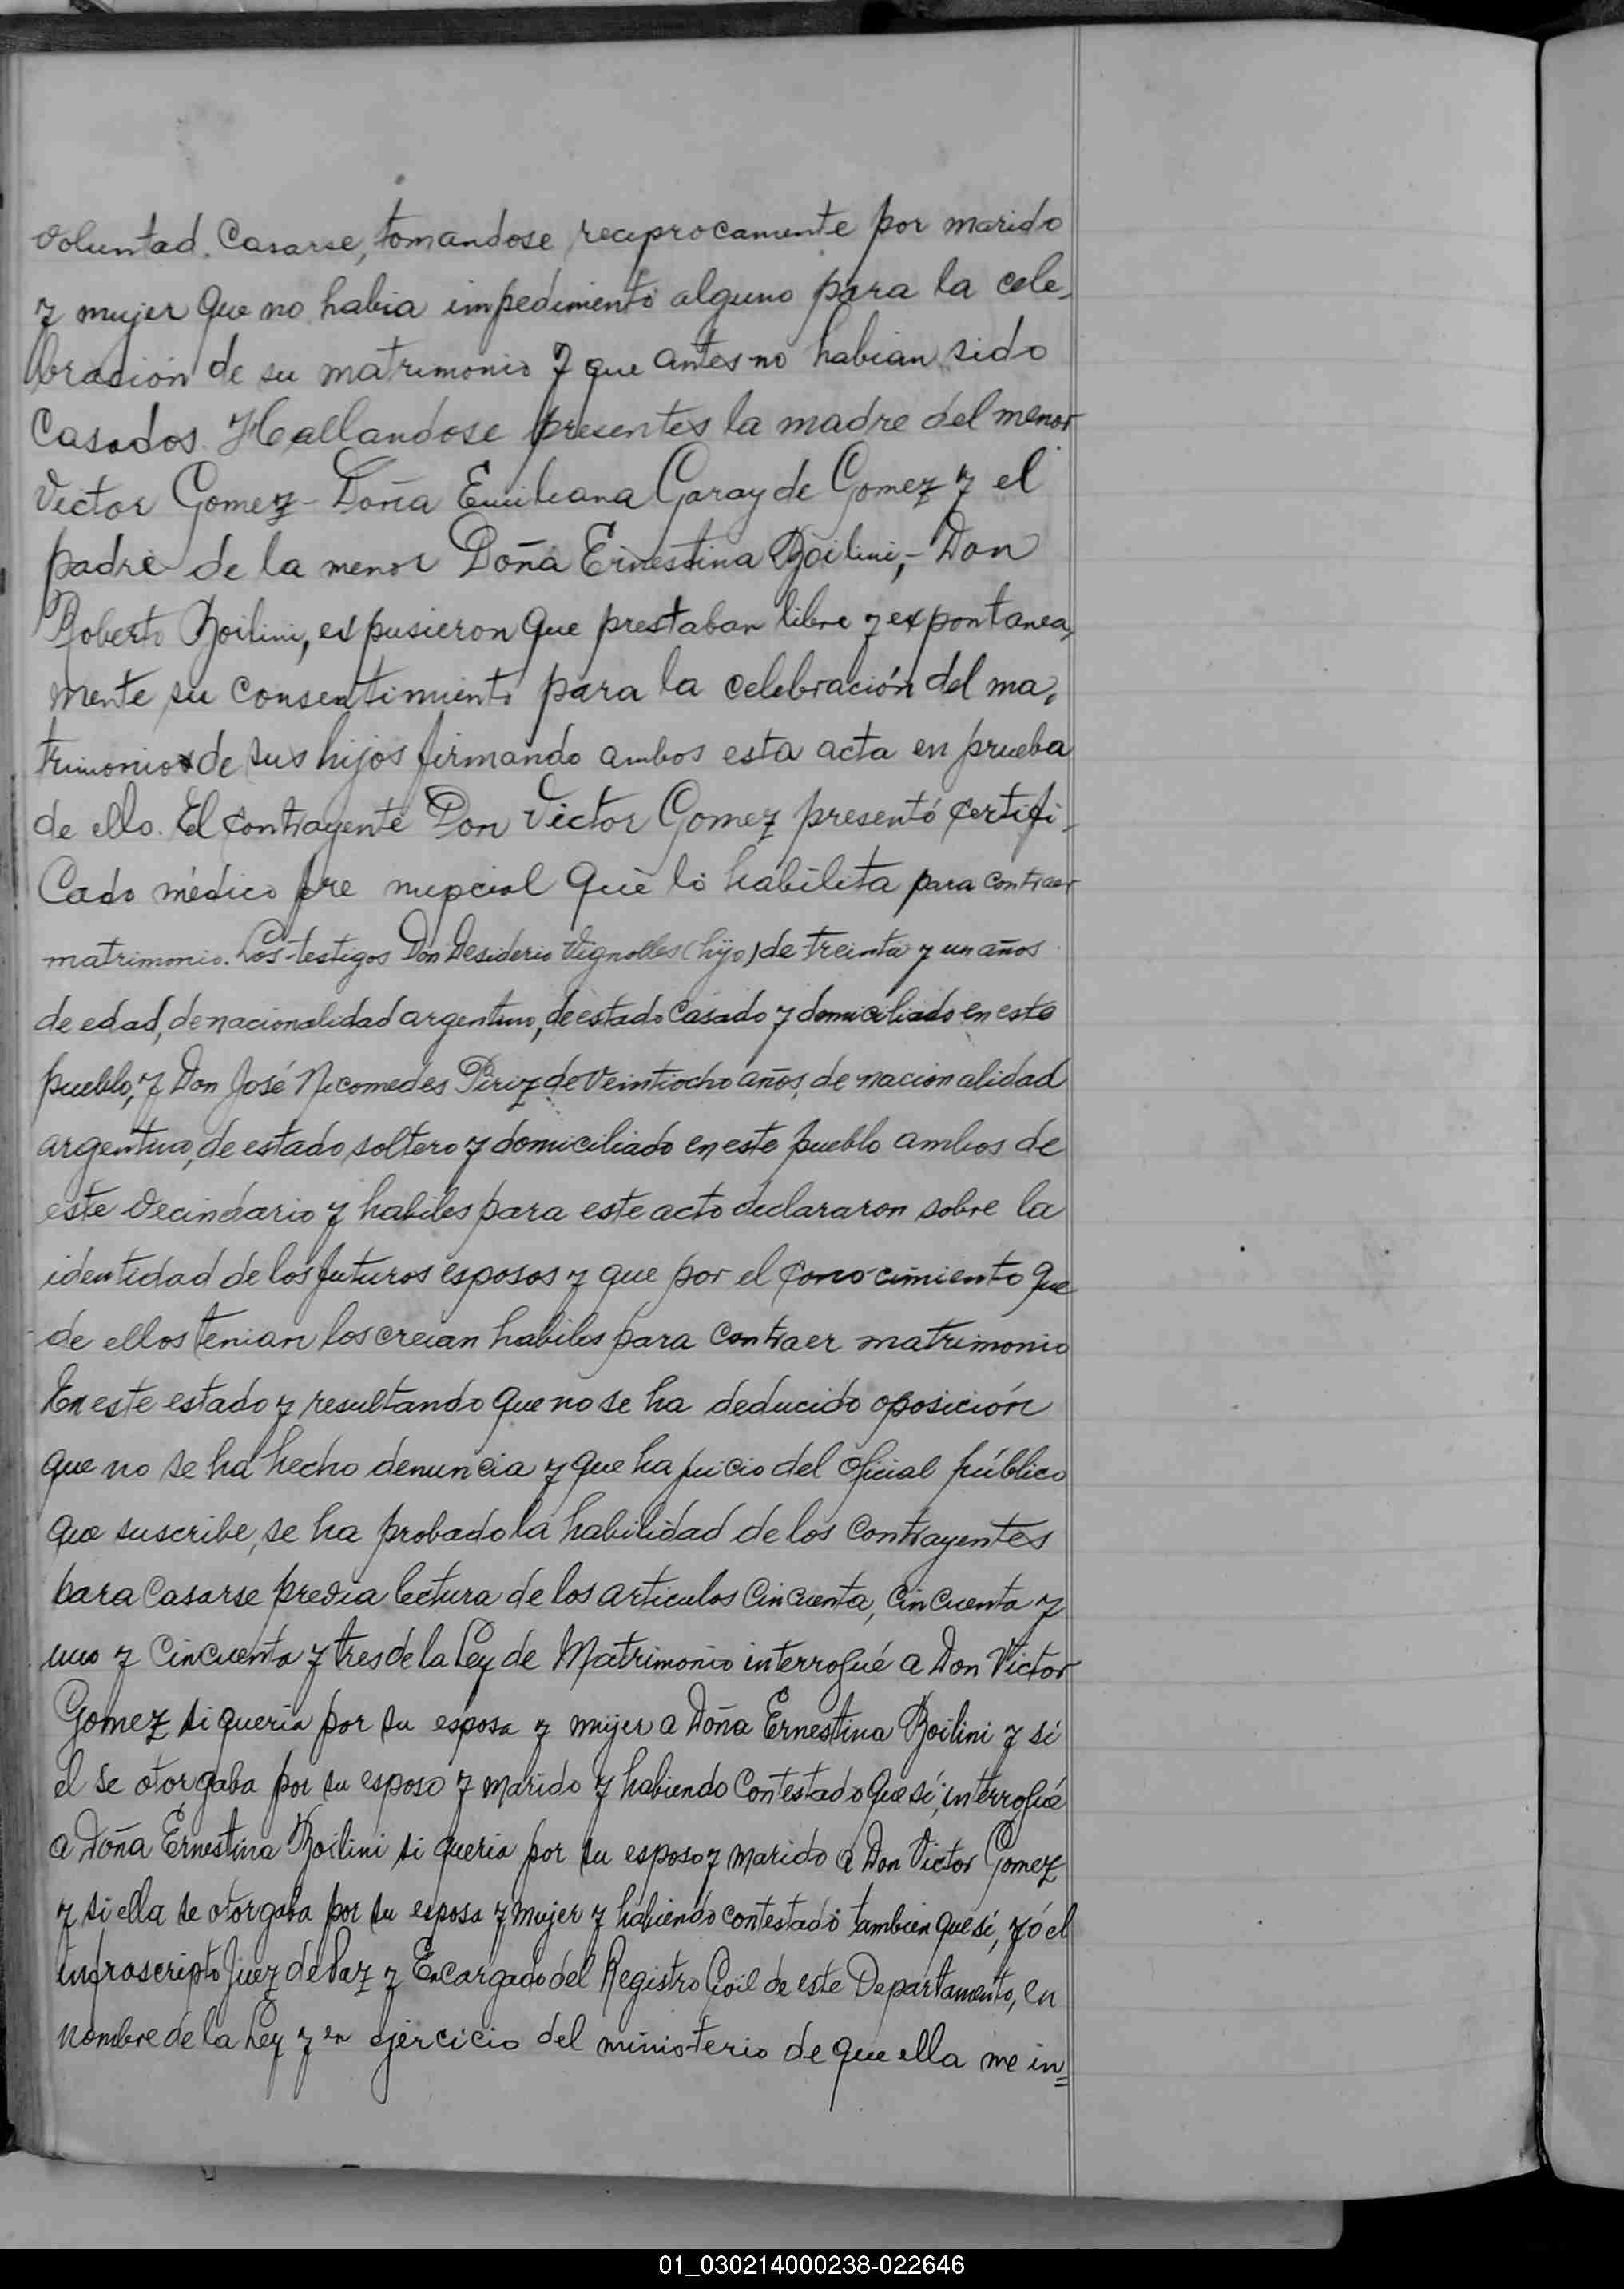 voluntad. Casarse, tomandose reciprocamente por marido
y mujer que no habia impedimento alguno para la cele-
bración de su matrimonio y que antes no habian sido
Casados. Hallandose presentes la madre del menor
Victor Gomez - Doña Emiliana Garay de Gomez y el
padre de la menor Doña Ernestina Boilini, - Don
Roberto Boilini, expusieron que prestaban libre y expontanea,
mente su consentimiento para la celebración del ma,
trimonio de sus hijos firmando ambos esta acta en prueba
de ello. El contrayente Don Victor Gomez presentó certifi-
cado médico pre nupcial que lo habilita para contraer
matrimonio. Los testigos Don Desiderio Vignolles (hijo) de treinta y un años
de edad, de nacionalidad argentino, de estado casado y domiciliado en este
pueblo, y Don José Nicomedes Piriz de veintiocho años, de nacionalidad
argentino, de estado soltero y domiciliado en este pueblo ambos de
este vecindario y habiles para este acto declararon sobre la
identidad de los futuros esposos y que por el conocimiento que
de ellos tenian los creian habiles para contraer matrimonio
En este estado y resultando que no se ha deducido oposición
que no se ha hecho denuncia y que ha juicio del oficial público
que suscribe, se ha probado la habilidad de los contrayentes
para casarse previa lectura de los articulos cincuenta, cincuenta y
uno y cincuenta y tres de la Ley de Matrimonio interrogué a Don Victor
Gomez si queria por su esposa y mujer a Doña Ernestina Boilini y si
el se otorgaba por su esposo y marido y habiendo contestado que si, interrogué
a Doña Ernestina Boilini si queria por su esposo y marido a Don Victor Gomez
y si ella se otorgaba por su esposa y mujer y habiendo contestado tambien que si, yó el
infrascripto Juez de Paz y Encargado del Registro Civil de este Departamento, en
nombre de la Ley y en ejercicio del ministerio de que ella me in=
01_030214000238-022646